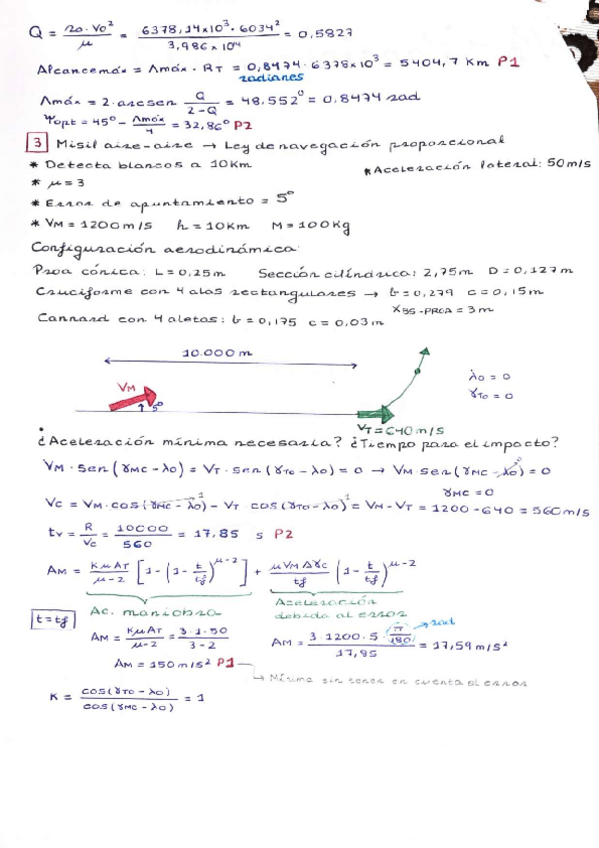 Q = r0·V0² / μ = 6378,14x10³ · 6034² / 3,986x10¹⁴ = 0,5827
Alcancemáx = Λmáx · RT = 0,8474 · 6378x10³ = 5404,7 Km P1
radianes
Λmáx = 2·arcsen Q / 2-Q = 48,552º = 0,8474 rad
Ψopt = 45º - Λmáx / 4 = 32,86º P2
3 Misil aire-aire → Ley de navegación proporcional
* Detecta blancos a 10Km
* Aceleración lateral: 50m/s
* μ = 3
* Error de apuntamiento = 5º
* VM = 1200m/s h = 10Km M = 100Kg
Configuración aerodinámica:
Proa cónica: L = 0,25m Sección cilíndrica: 2,75m D = 0,127m
Cruciforme con 4 alas rectangulares → b = 0,279 c = 0,15m
XBS-PROA = 3m
Cannard con 4 aletas: b = 0,175 c = 0,03m
10.000m
VM
5º
λ0 = 0
γT0 = 0
VT = 640m/s
¿Aceleración mínima necesaria? ¿Tiempo para el impacto?
VM · sen(γMC - λ0) = VT · sen(γT0 - λ0) = 0 → VM sen(γMC - λ0) = 0
γMC = 0
VC = VM·cos(γMC - λ0)¹ - VT cos(γT0 - λ0)¹ = VM - VT = 1200 - 640 = 560m/s
tv = R / VC = 10000 / 560 = 17,85 s P2
AM = KμAT / μ-2 [1 - (1 - t/tf)^μ-2] + μVMΔγC / tf (1 - t/tf)^μ-2
Ac. maniobra
Aceleración debida al error
t = tf
AM = KμAT / μ-2 = 3·1·50 / 3-2
AM = 3·1200·5·π/180 / 17,85 = 17,59m/s²
rad
AM = 150m/s² P1
Mínima sin tener en cuenta el error
K = cos(γT0 - λ0) / cos(γMC - λ0) = 1